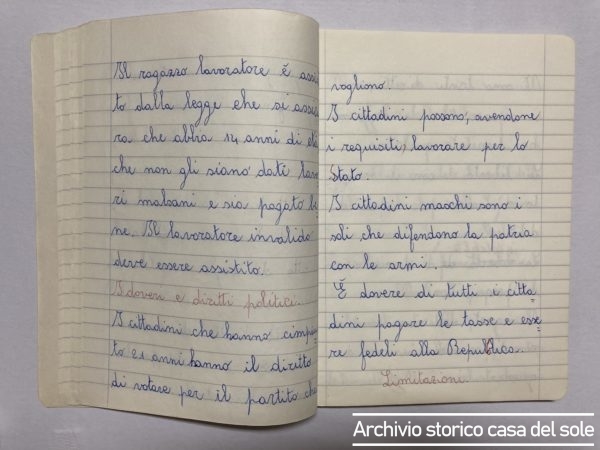 Il ragazzo lavoratore è assi
to dalla legge che si assicu
ra che abbia 14 anni di età
che non gli siano dati lavo
ri malsani e sia pagato be
ne. Il lavoratore invalido
deve essere assistito.
I doveri e diritti politici.
I cittadini che hanno compiu
to 21 anni hanno il diritto
di votare per il partito che
vogliono.
I cittadini possono, avendone
i requisiti, lavorare per lo
Stato.
I cittadini maschi sono i
soli che difendono la patria
con le armi.
È dovere di tutti i citta=
dini pagare le tasse e esse
re fedeli alla Repubblica.
Limitazioni.
Archivio storico casa del sole